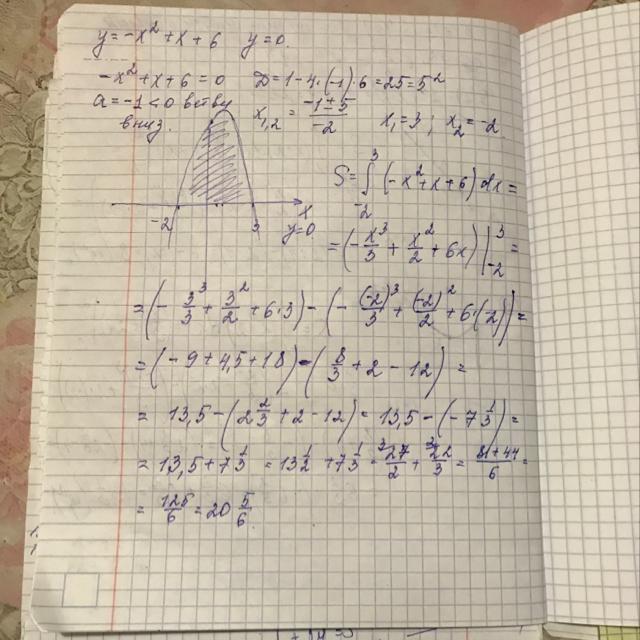 y=-x²+x+6   y=0.
-x²+x+6=0   D=1-4·(-1)·6=25=5²
a=-1<0 ветви
вниз.   x₁,₂ = (-1±5)/(-2)   x₁=3; x₂=-2.
S=∫₋₂³(-x²+x+6)dx=
-2   3   x
y=0
=(-x³/3+x²/2+6x)|₋₂³=
=(-3³/3+3²/2+6·3)-(-(-2)³/3+(-2)²/2+6·(-2))=
=(-9+4,5+18)-(8/3+2-12)=
=13,5-(2 2/3+2-12)=13,5-(-7 1/3)=
=13,5+7 1/3=13 1/2+7 1/3=³27/2+²22/3=(81+44)/6=
=125/6=20 5/6.